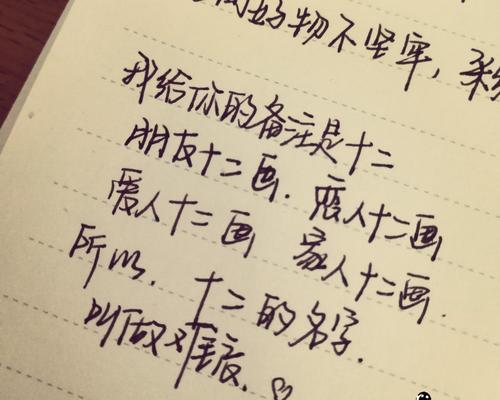 间好物不坚牢，彩
我给你的备注是十二
朋友十二画．恋人十二画
爱人十二画 家人十二画．
所以．十二的名字．
叫做难忘．♡